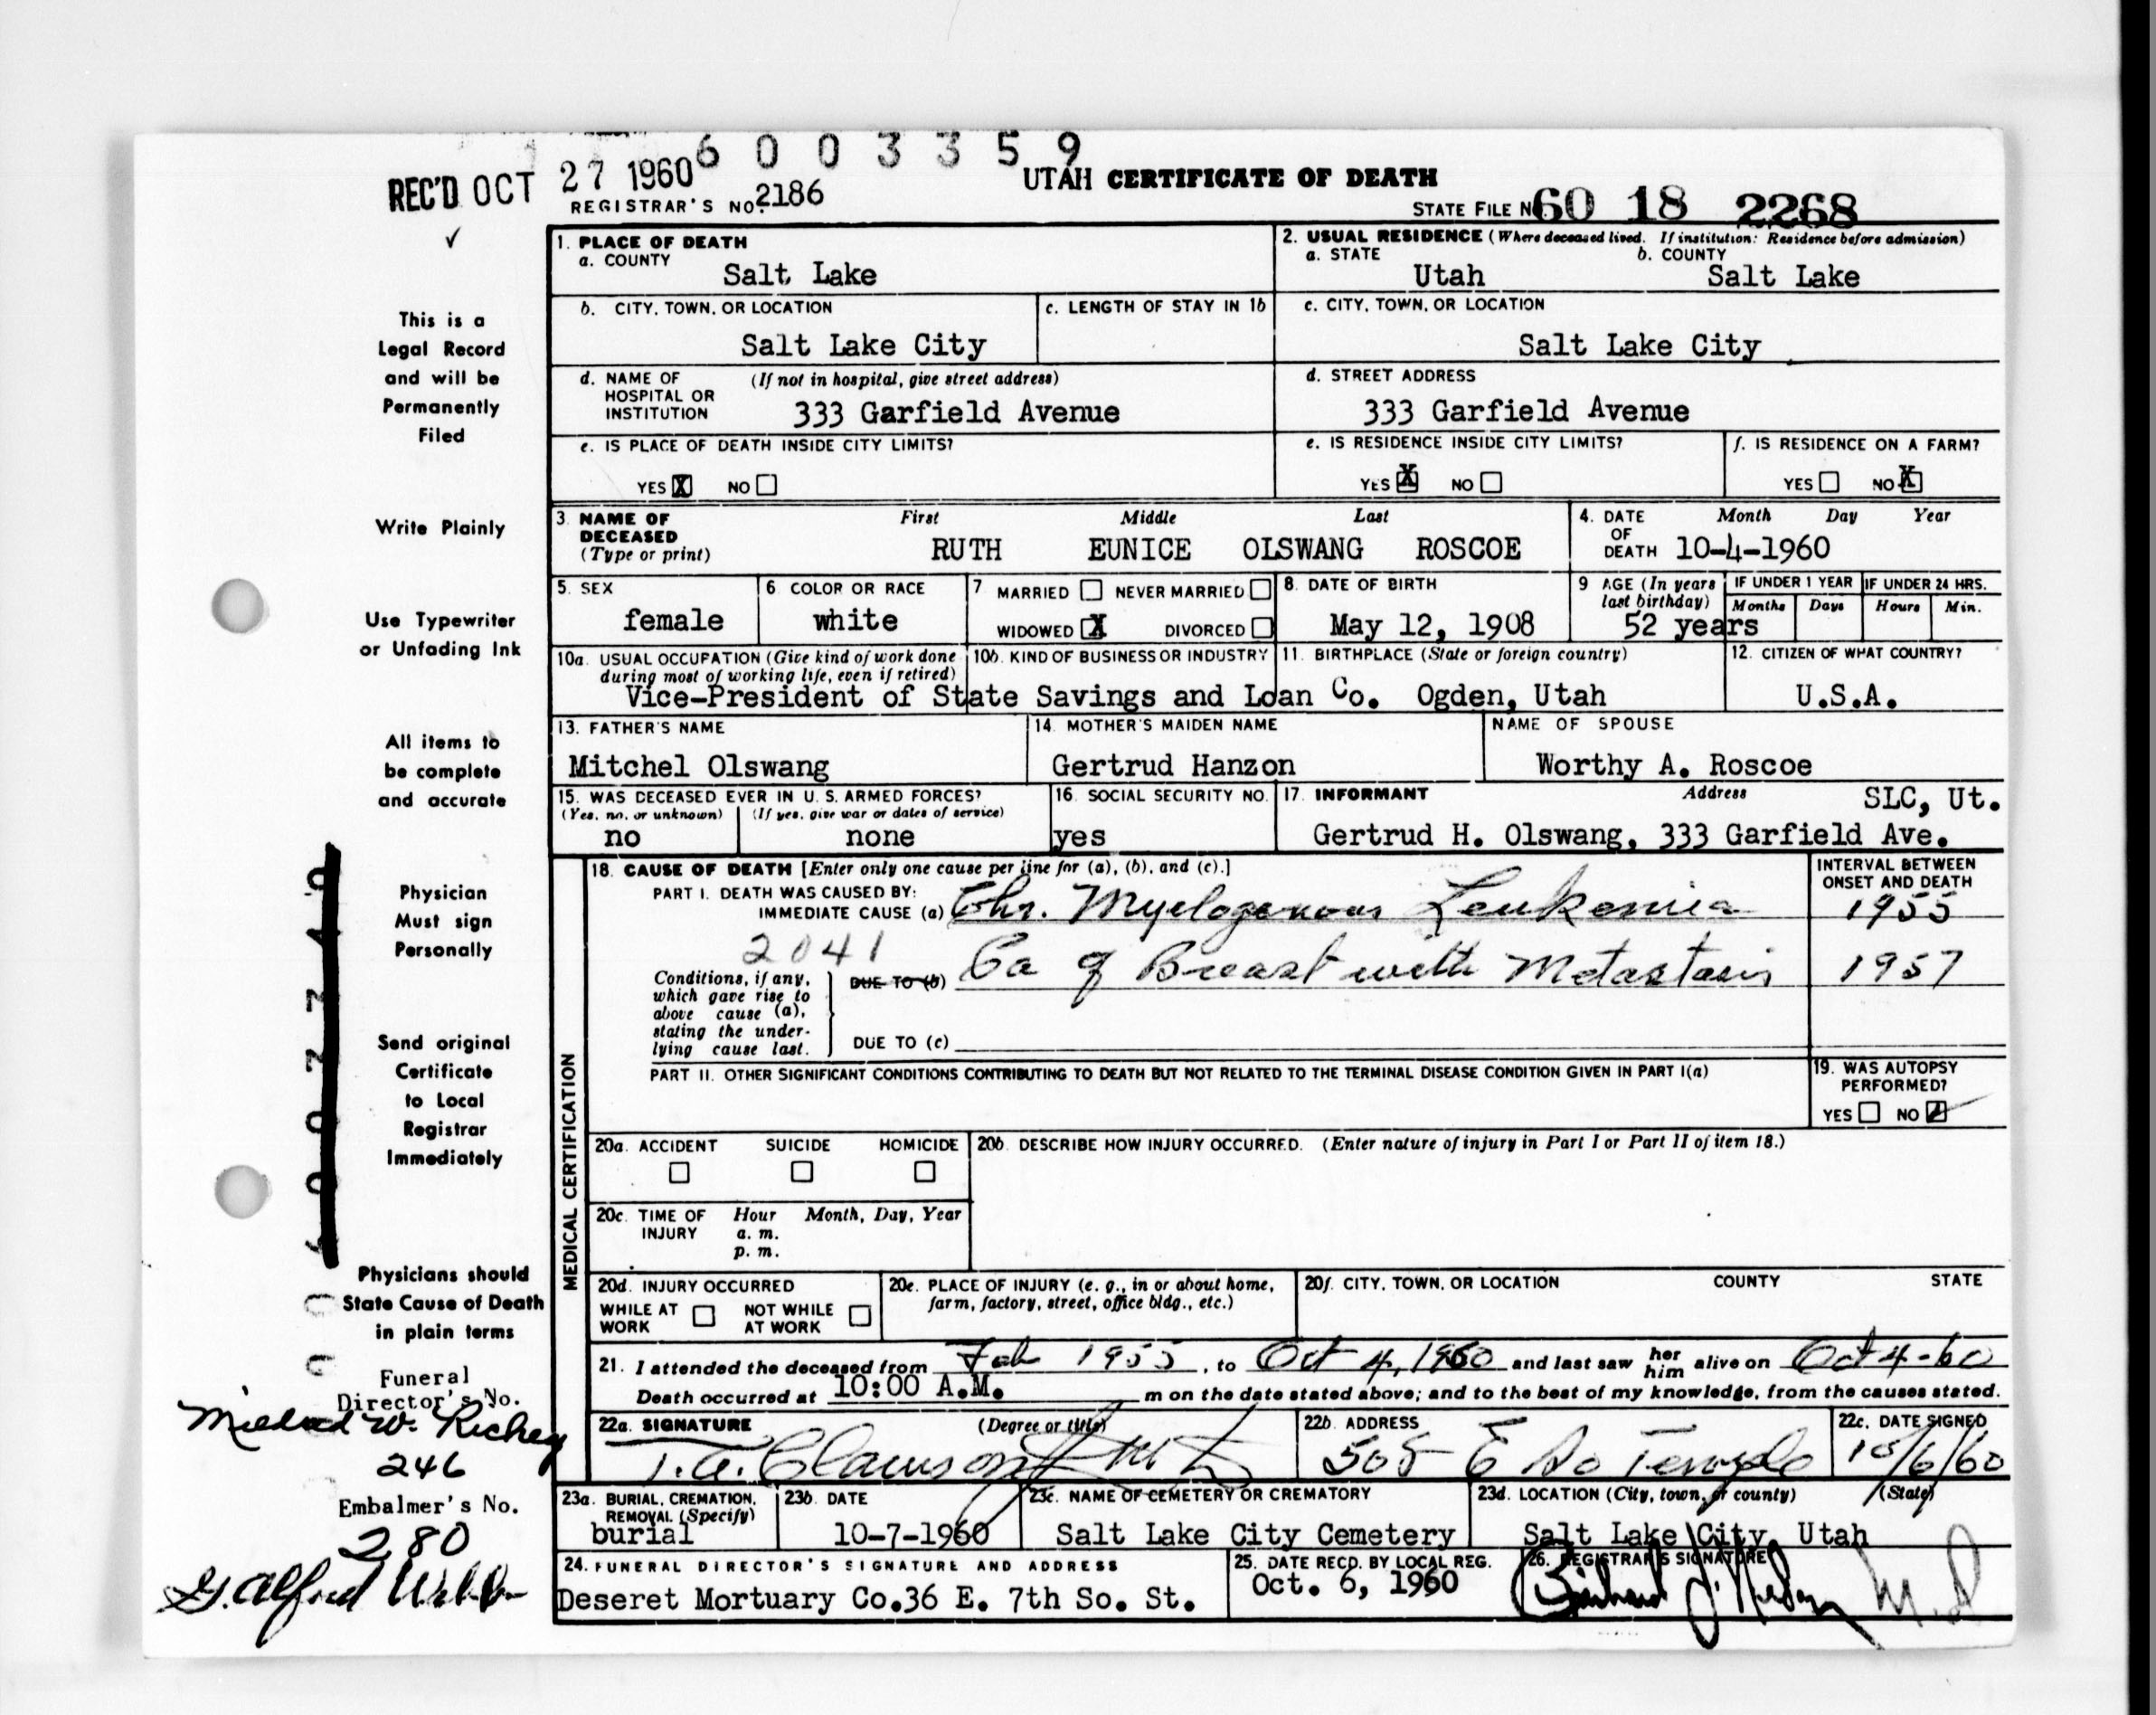 6 0 0 3 3 5 9
REC'D OCT 27 1960
REGISTRAR'S NO. 2186
UTAH CERTIFICATE OF DEATH
STATE FILE NO 60 18 2268
✓
This is a
Legal Record
and will be
Permanently
Filed
Write Plainly
Use Typewriter
or Unfading Ink
All items to
be complete
and accurate
Physician
Must sign
Personally
Send original
Certificate
to Local
Registrar
Immediately
Physicians should
State Cause of Death
in plain terms
Funeral
Director's No.
Mildred W. Richey
246
Embalmer's No.
280
1. PLACE OF DEATH
a. COUNTY
Salt Lake
2. USUAL RESIDENCE (Where deceased lived. If institution: Residence before admission)
a. STATE b. COUNTY
Utah Salt Lake
b. CITY, TOWN, OR LOCATION
Salt Lake City
c. LENGTH OF STAY IN 1b
c. CITY, TOWN, OR LOCATION
Salt Lake City
d. NAME OF (If not in hospital, give street address)
HOSPITAL OR
INSTITUTION 333 Garfield Avenue
d. STREET ADDRESS
333 Garfield Avenue
e. IS PLACE OF DEATH INSIDE CITY LIMITS?
YES X NO
e. IS RESIDENCE INSIDE CITY LIMITS?
YES X NO
f. IS RESIDENCE ON A FARM?
YES NO X
3. NAME OF First Middle Last
DECEASED
(Type or print) RUTH EUNICE OLSWANG ROSCOE
4. DATE Month Day Year
OF
DEATH 10-4-1960
5. SEX
female
6. COLOR OR RACE
white
7 MARRIED NEVER MARRIED
WIDOWED X DIVORCED
8. DATE OF BIRTH
May 12, 1908
9 AGE (In years
last birthday)
52 years
IF UNDER 1 YEAR
Months Days
IF UNDER 24 HRS.
Hours Min.
10a. USUAL OCCUPATION (Give kind of work done
during most of working life, even if retired)
10b. KIND OF BUSINESS OR INDUSTRY
Vice-President of State Savings and Loan Co.
11. BIRTHPLACE (State or foreign country)
Ogden, Utah
12. CITIZEN OF WHAT COUNTRY?
U.S.A.
13. FATHER'S NAME
Mitchel Olswang
14. MOTHER'S MAIDEN NAME
Gertrud Hanzon
NAME OF SPOUSE
Worthy A. Roscoe
15. WAS DECEASED EVER IN U. S. ARMED FORCES?
(Yes, no, or unknown) (If yes, give war or dates of service)
no none
16. SOCIAL SECURITY NO.
yes
17. INFORMANT Address SLC, Ut.
Gertrud H. Olswang, 333 Garfield Ave.
MEDICAL CERTIFICATION
18. CAUSE OF DEATH [Enter only one cause per line for (a), (b), and (c).]
INTERVAL BETWEEN
ONSET AND DEATH
PART I. DEATH WAS CAUSED BY:
IMMEDIATE CAUSE (a) Chr. Myelogenous Leukemia 1955
2041
Conditions, if any,
which gave rise to
above cause (a),
stating the under-
lying cause last.
DUE TO (b) Ca of Breast with Metastasis 1957
DUE TO (c)
PART II. OTHER SIGNIFICANT CONDITIONS CONTRIBUTING TO DEATH BUT NOT RELATED TO THE TERMINAL DISEASE CONDITION GIVEN IN PART I(a)
19. WAS AUTOPSY
PERFORMED?
YES NO ✓
20a. ACCIDENT SUICIDE HOMICIDE
20b. DESCRIBE HOW INJURY OCCURRED. (Enter nature of injury in Part I or Part II of item 18.)
20c. TIME OF Hour Month, Day, Year
INJURY a. m.
p. m.
20d. INJURY OCCURRED
WHILE AT NOT WHILE
WORK AT WORK
20e. PLACE OF INJURY (e. g., in or about home,
farm, factory, street, office bldg., etc.)
20f. CITY, TOWN, OR LOCATION COUNTY STATE
21. I attended the deceased from Feb 1955, to Oct 4, 1960 and last saw her him alive on Oct 4-60
Death occurred at 10:00 A.M. m on the date stated above; and to the best of my knowledge, from the causes stated.
22a. SIGNATURE (Degree or title)
T.A. Clawson Jr MD
22b. ADDRESS
508 E So Temple
22c. DATE SIGNED
10/6/60
23a. BURIAL, CREMATION,
REMOVAL (Specify)
burial
23b. DATE
10-7-1960
23c. NAME OF CEMETERY OR CREMATORY
Salt Lake City Cemetery
23d. LOCATION (City, town, or county) (State)
Salt Lake City, Utah
24. FUNERAL DIRECTOR'S SIGNATURE AND ADDRESS
Deseret Mortuary Co. 36 E. 7th So. St.
25. DATE RECD. BY LOCAL REG.
Oct. 6, 1960
26. REGISTRAR'S SIGNATURE
M.D